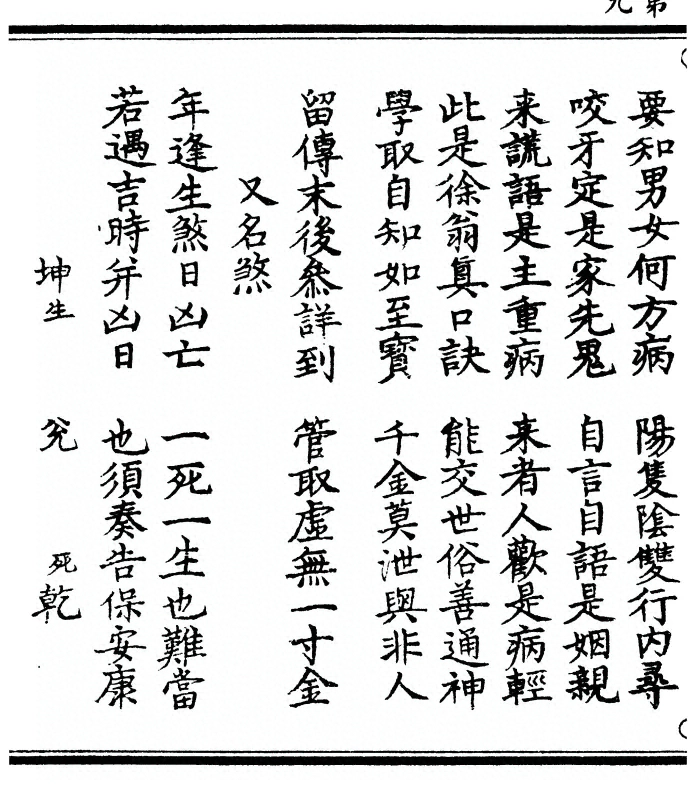 要知男女何方病　陽隻陰雙行内尋
咬牙定是家先鬼　自言自語是姻親
来謊語是主重病　来者人歡是病輕
此是徐翁真口訣　能交世俗善通神
學取自知如至寳　千金莫泄與非人
留傳末後叅詳到　管取虚無一寸金
又名煞
年逢生煞日凶亡　一死一生也難當
若遇吉時并凶日　也須奏告保安康
坤生　兊　死乾